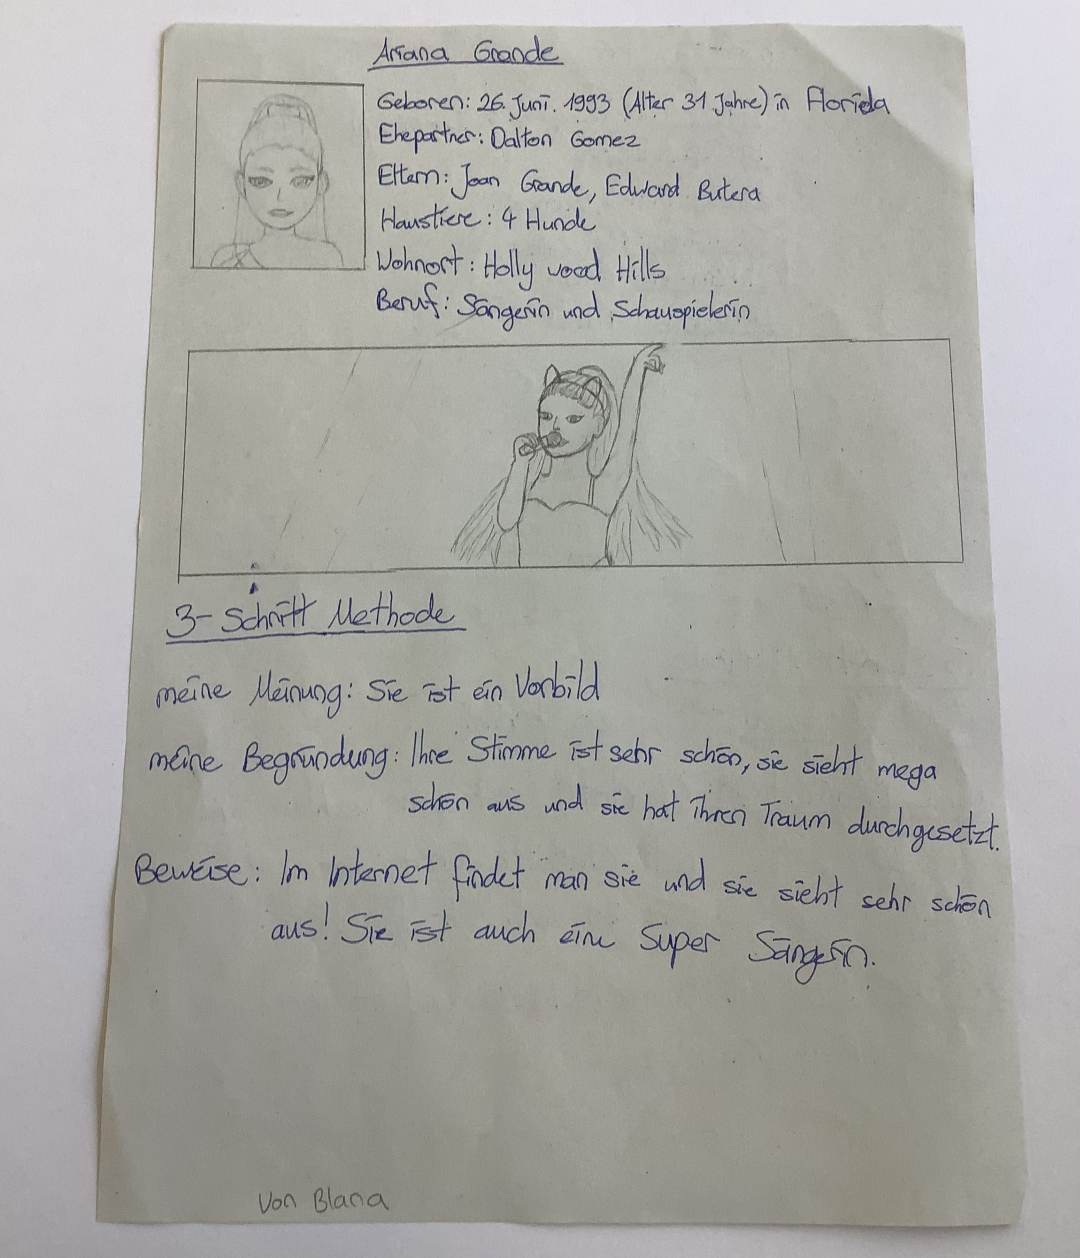 Ariana Grande
Geboren: 26. Juni. 1993 (Alter 31 Jahre) in Florida
Ehepartner: Dalton Gomez
Eltern: Joan Grande, Edward Butera
Haustiere: 4 Hunde
Wohnort: Holly wood Hills
Beruf: Sängerin und Schauspielerin
3-Schritt Methode
meine Meinung: Sie ist ein Vorbild
meine Begründung: Ihre Stimme ist sehr schön, sie sieht mega
schön aus und sie hat ihren Traum durchgesetzt.
Beweise: Im Internet findet man sie und sie sieht sehr schön
aus! Sie ist auch eine Super Sängerin.
Von Blana